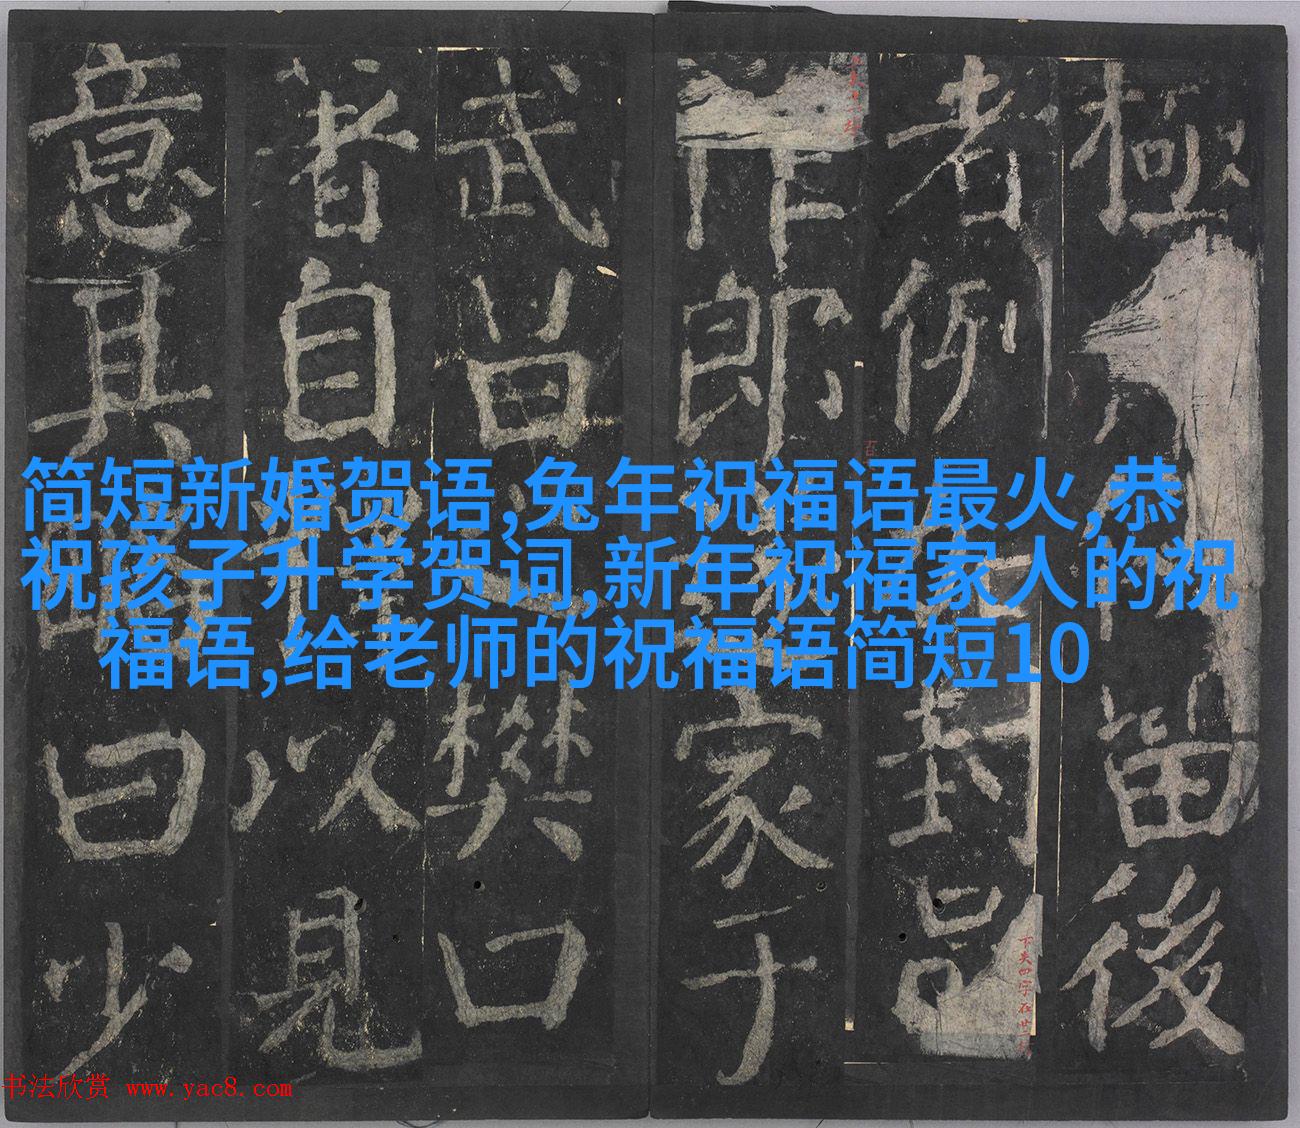 極留後
者例封
作郎家于
武昌樊口
著自以見
意其曰少
下失四字在廿
简短新婚贺语,兔年祝福语最火,恭
祝孩子升学贺词,新年祝福家人的祝
福语,给老师的祝福语简短10
书法欣赏 www.yac8.com